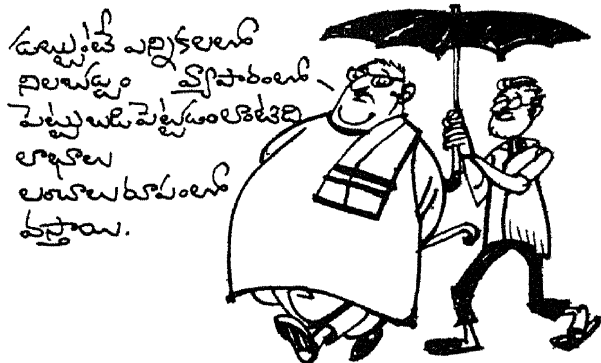 డబ్బుంటే ఎన్నికలలో
నిలబడ్డం వ్యాపారంలో
పెట్టుబడిపెట్టడంలాంటిది
లాభాలు
లంచాలురూపంలో
వస్తాయి.